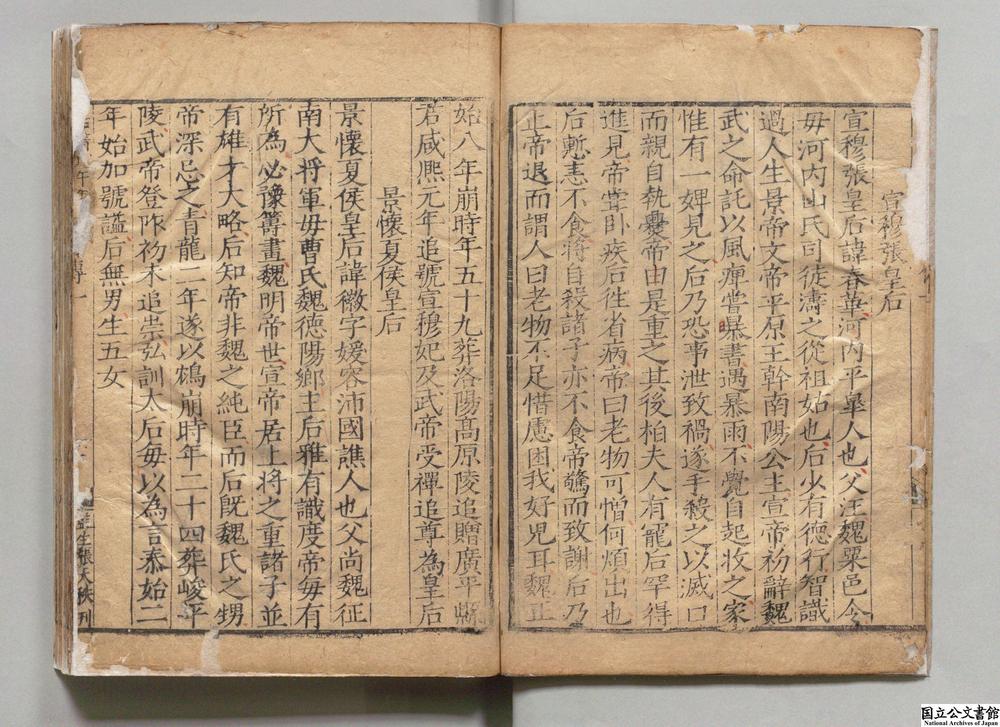 宣穆張皇后
宣穆張皇后諱春華河内平臯人也父汪魏粟邑令
母河内山氏司徒濤之從祖姑也后少有德行智識
過人生景帝文帝平原王幹南陽公主宣帝初辭魏
武之命託以風痺嘗暴書遇暴雨不覺自起收之家
惟有一婢見之后乃恐事泄致禍遂手殺之以滅口
而親自執爨帝由是重之其後柏夫人有寵后罕得
進見帝嘗卧疾后徃省病帝曰老物可憎何煩出也
后慙恚不食將自殺諸子亦不食帝驚而致謝后乃
止帝退而謂人曰老物不足惜慮困我好兒耳魏正
始八年崩時年五十九葬洛陽高原陵追贈廣平縣
君咸熙元年追號宣穆妃及武帝受禪追尊為皇后
景懷夏侯皇后
景懷夏侯皇后諱徽字媛容沛國譙人也父尚魏征
南大将軍母曹氏魏德陽鄉主后雅有識度帝毎有
所為必豫籌畫魏明帝世宣帝居上將之重諸子並
有雄才大略后知帝非魏之純臣而后既魏氏之甥
帝深忌之青龍二年遂以鴆崩時年二十四葬峻平
陵武帝登阼初未追崇弘訓太后毎以為言泰始二
年始加號謚后無男生五女
傳一
監生張大秩刊
国立公文書館
National Archives of Japan